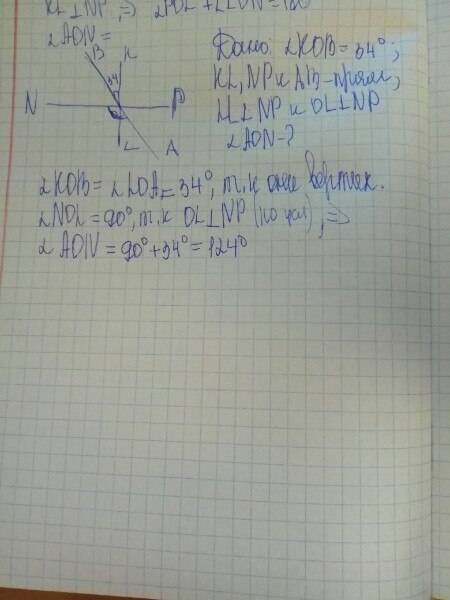 KL⊥NP, ⇒ ∠POL + ∠LON = 180
∠AON =
B K
34
N P
L A
Дано: ∠KOB = 34°;
KL, NP и AB - прям,
⊥NP и OL⊥NP
∠AON - ?
∠KOB = ∠LOA = 34°, т.к они вертик.
∠NOL = 90°, т.к OL⊥NP (по усл), ⇒
∠AON = 90° + 34° = 124°